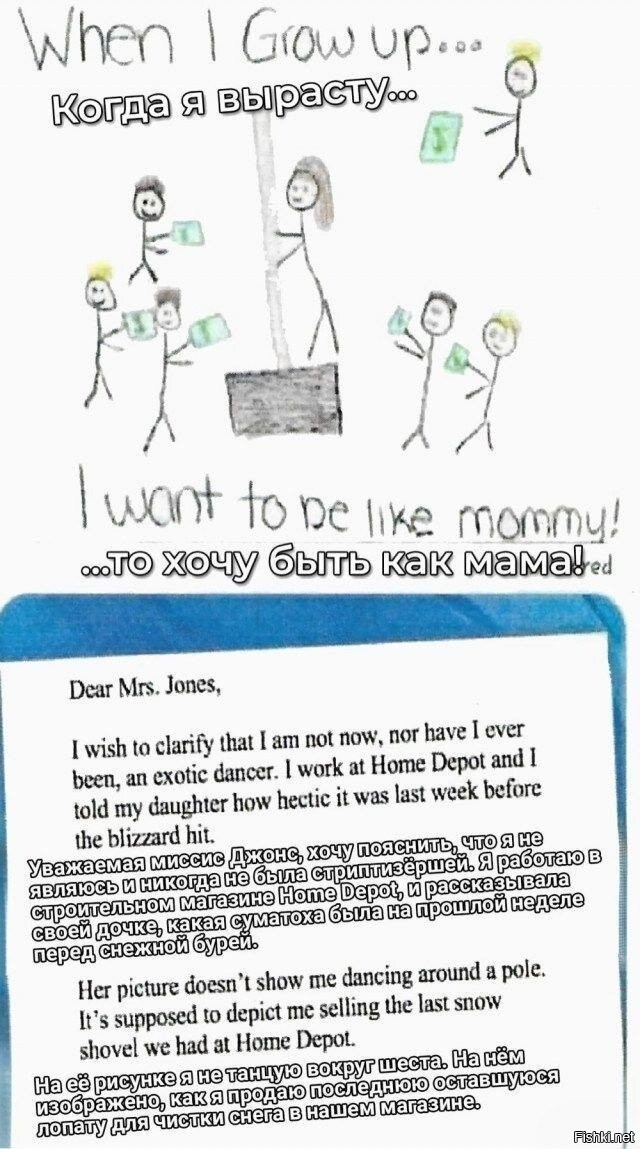 When I Grow up...
Когда я вырасту...
I want to be like mommy!
...то хочу быть как мама!
red
Dear Mrs. Jones,
I wish to clarify that I am not now, nor have I ever
been, an exotic dancer. I work at Home Depot and I
told my daughter how hectic it was last week before
the blizzard hit.
Уважаемая миссис Джонс, хочу пояснить, что я не
являюсь и никогда не была стриптизёршей. Я работаю в
строительном магазине Home Depot, и рассказывала
своей дочке, какая суматоха была на прошлой неделе
перед снежной бурей.
Her picture doesn't show me dancing around a pole.
It's supposed to depict me selling the last snow
shovel we had at Home Depot.
На её рисунке я не танцую вокруг шеста. На нём
изображено, как я продаю последнюю оставшуюся
лопату для чистки снега в нашем магазине.
Fishki.net